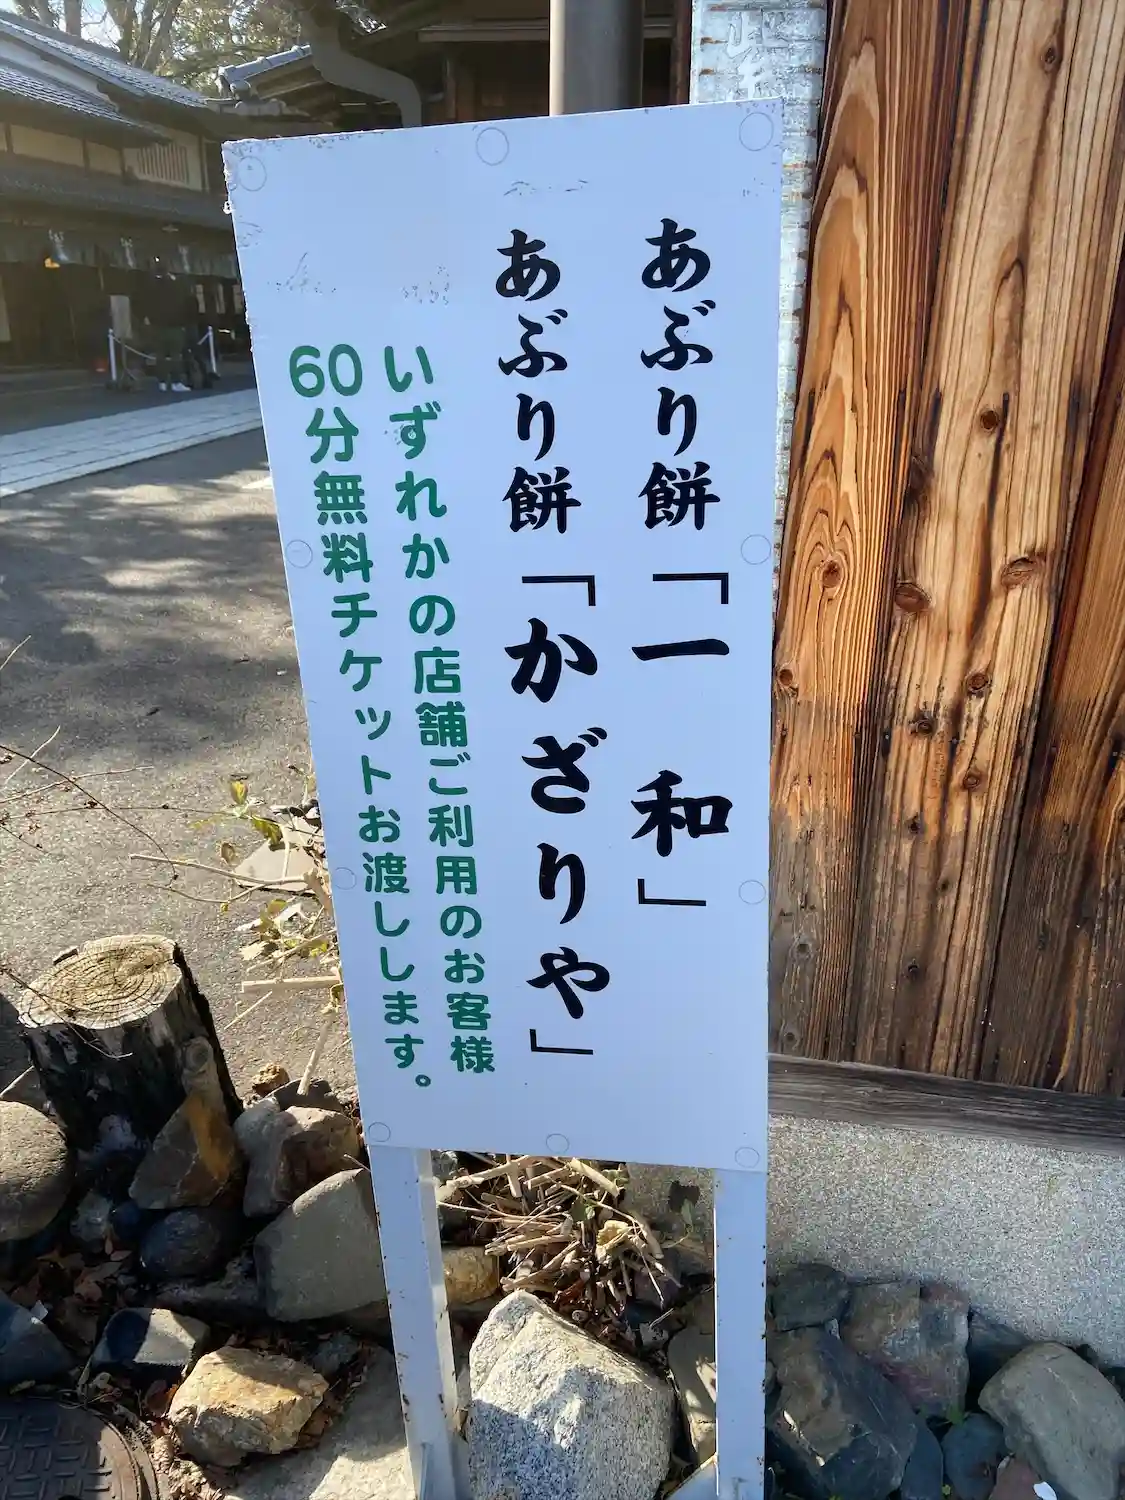 あぶり餅「一和」
あぶり餅「かざりや」
いずれかの店舗ご利用のお客様
60分無料チケットお渡しします。